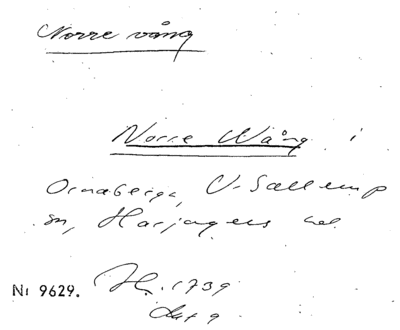 Norre vång
Norre Wång i
Ornaberga, V. Sallerup
sn, Harjagers hd
Nr 9629. H. 1739